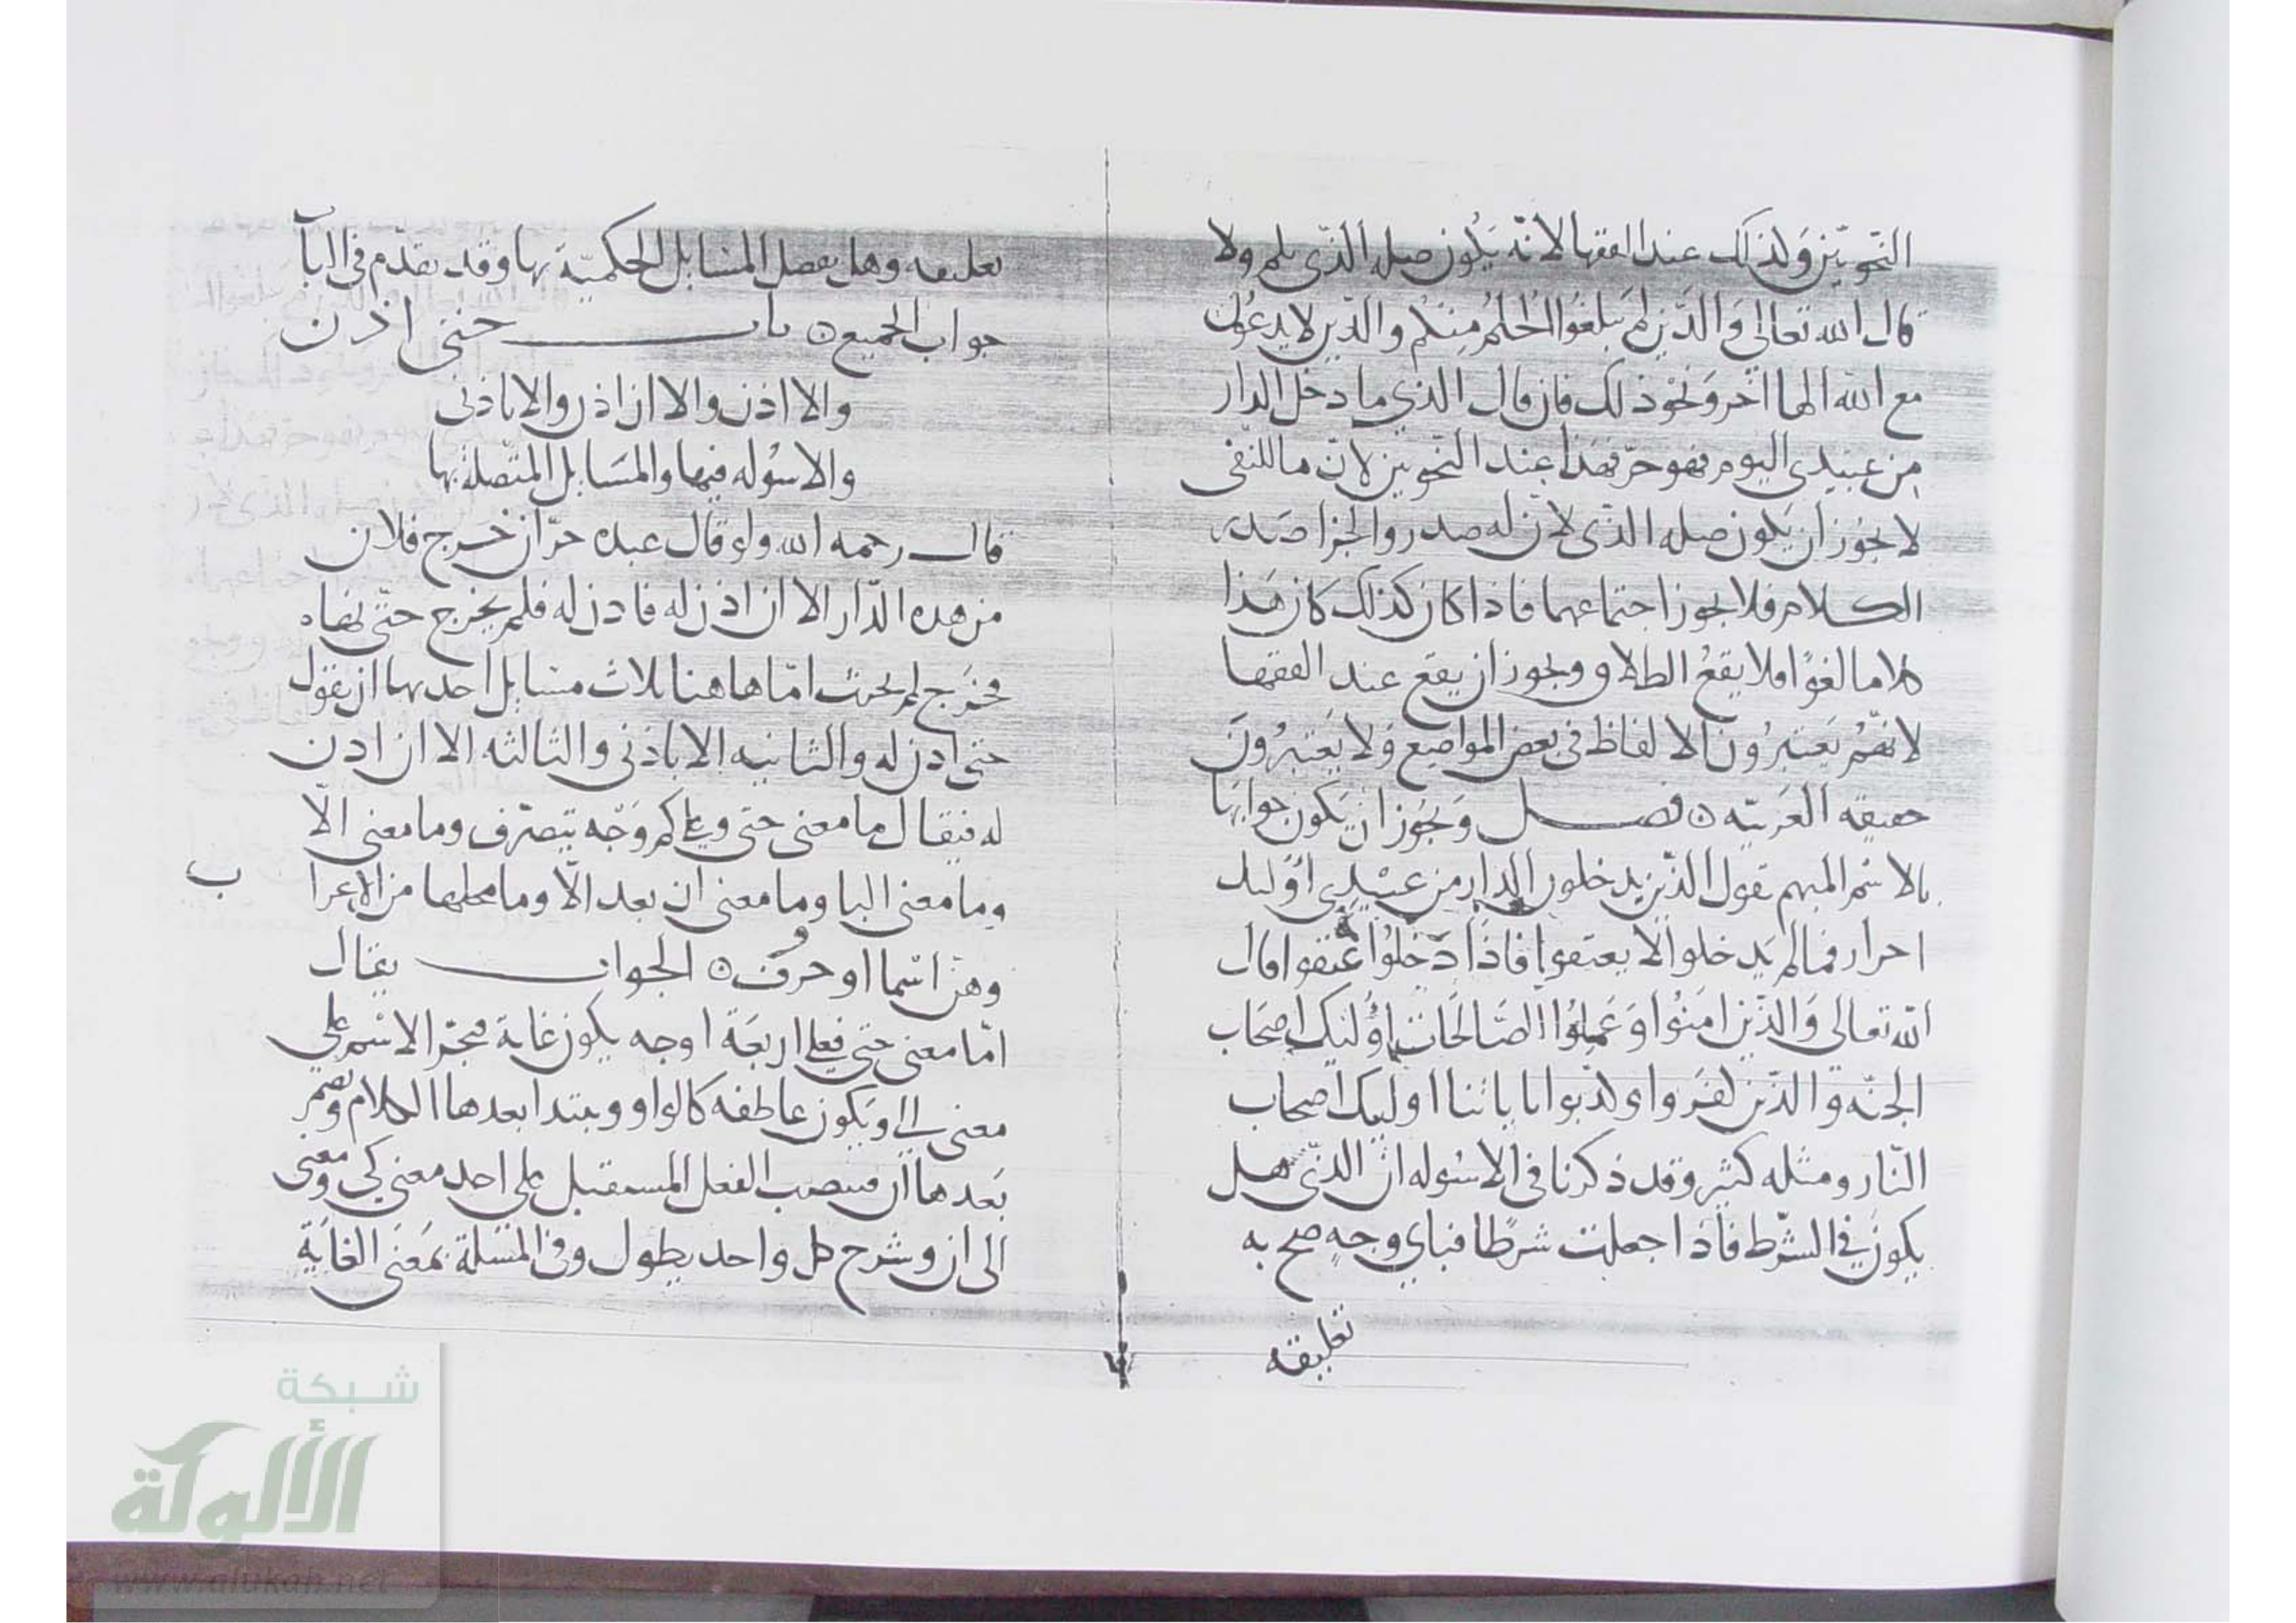 النحويين وكذلك عند الفقها لانه يكون صله الذي بلم ولا
قال الله تعالى والذين لم يبلغوا الحلم منكم والذين لا يدعون
مع الله الها اخر ونحو ذلك فان قال الذي ما دخل الدار
من عبيدي اليوم فهو حر فهذا عند النحويين لان ما للنفى
لا يجوز ان يكون صله الذي لان له صدر والجزا صدر
الكلام فلا يجوز اجتماعهما فاذا كان كذلك كان هذا
كلاما لغوا فلا يقع الطلاق ويجوز ان يقع عند الفقها
لانهم يعتبرون الالفاظ في بعض المواضع ولا يعتبرون
حقيقه العربيه ٥ فصل ويجوز ان يكون جوابها
بالاسم المبهم تقول الذين يدخلون الدار من عبيدي اوليك
احرار فما لم يدخلوا لا يعتقوا فاذا دخلوا عتقوا قال
الله تعالى والذين امنوا وعملوا الصالحات اوليك اصحاب
الجنه والذين كفروا وكذبوا باياتنا اوليك اصحاب
النار ومثله كثير وقد ذكرنا في الاسوله ان الذي هل
يكون في الشرط فاذا جعلت شرطا فباي وجه صح به
تعليقه
تعليقه وهل يفصل المسايل الحكمية بها وقد تقدم في الباب
جواب الجميع ٥ باب حتى اذن
والا اذن والا ان اذن والا باذني
والاسوله فيها والمسايل المتصلة بها
قال رحمه الله ولو قال عبده حر ان خرج فلان
من هده الدار الا ان اذن له فاذن له فلم يخرج حتى نهاه
فخرج لم يحنث اما هاهنا ثلاث مسايل احديها ان يقول
حتى اذن له والثانيه الا باذني والثالثه الا ان اذن
له فيقال ما معنى حتى وعلى كم وجه يتصرف وما معنى الا
وما معنى البا وما معنى ان بعد الا وما محلها من الاعراب
وهن اسما او حروف ٥ الجواب يقال
اما معنى حتى فعلى اربعة اوجه يكون غاية فتجر الاسم على
معنى الى ويكون عاطفه كالواو ويبتدا بعدها الكلام وتضمر
بعدها ان فينصب الفعل المستقبل على احد معنى كي ومعنى
الى ان وشرح كل واحد يطول وفي المسلة بمعنى الغاية
شبكة
الألوكة
www.alukah.net